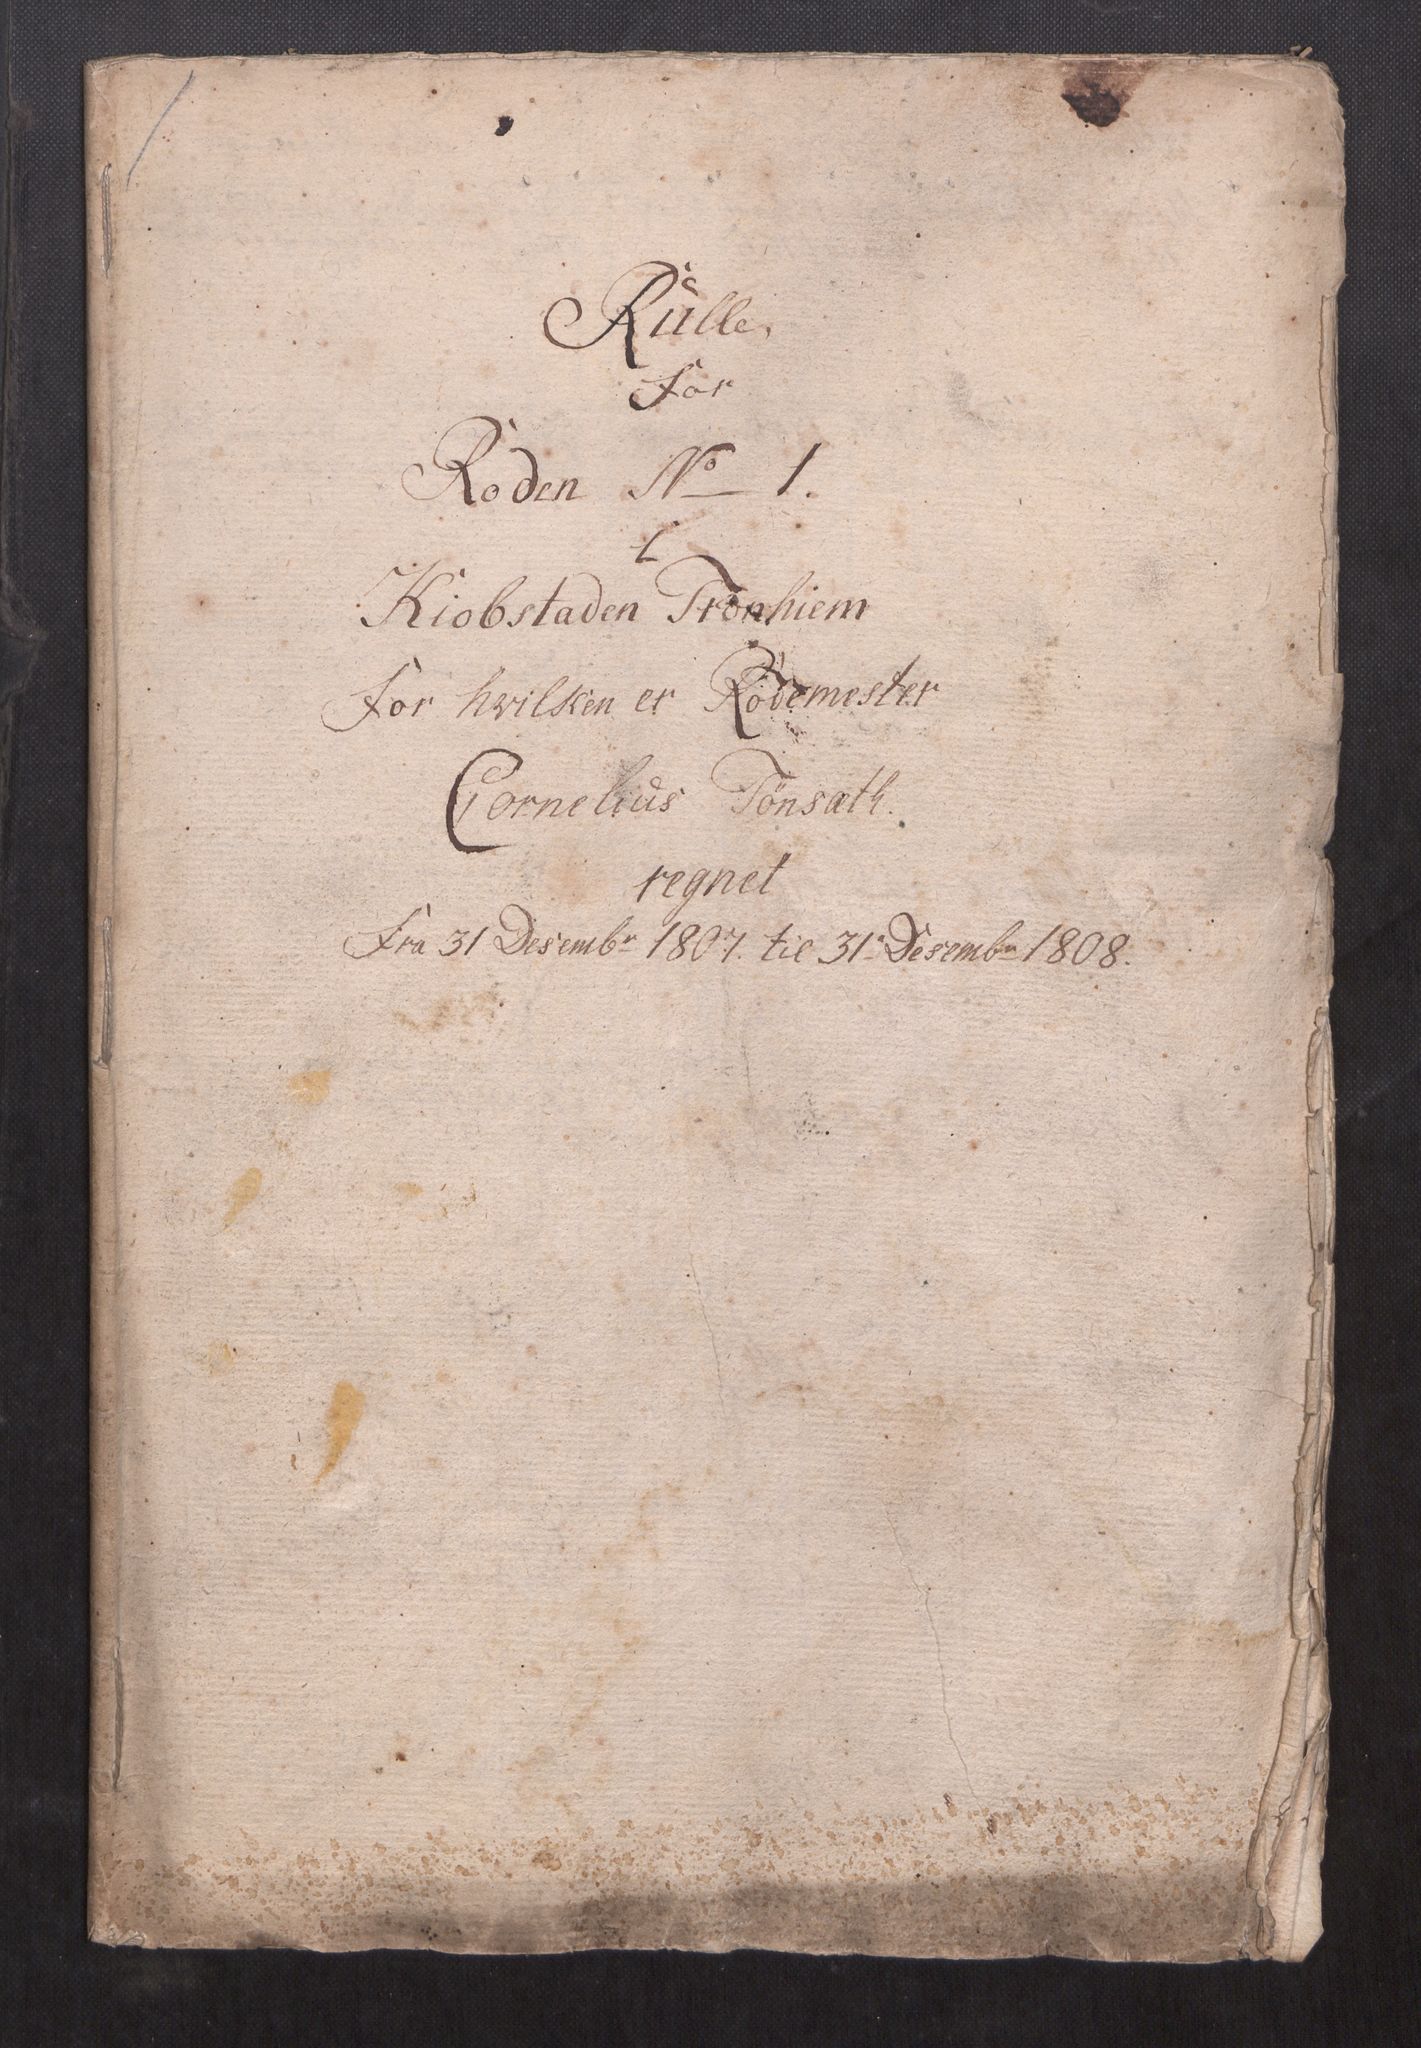 Rulle
for
Roden No 1.
i
Kiobstaden Tronhiem
for hvilken er Rodemester
Cornelius Tønsath.
regnet
Fra 31 Desembr 1807. til 31 Desembr 1808.